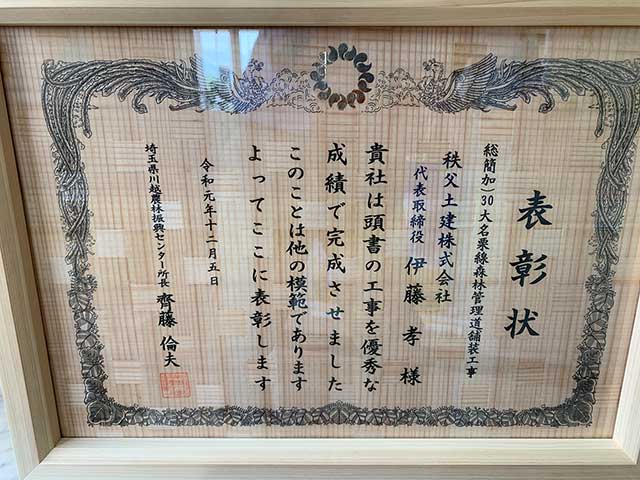 表彰状
総簡加)30大名栗線森林管理道舗装工事
秩父土建株式会社
代表取締役 伊藤 孝 様
貴社は頭書の工事を優秀な
成績で完成させました
このことは他の模範であります
よってここに表彰します
令和元年十二月五日
埼玉県川越農林振興センター所長 齊藤 倫夫